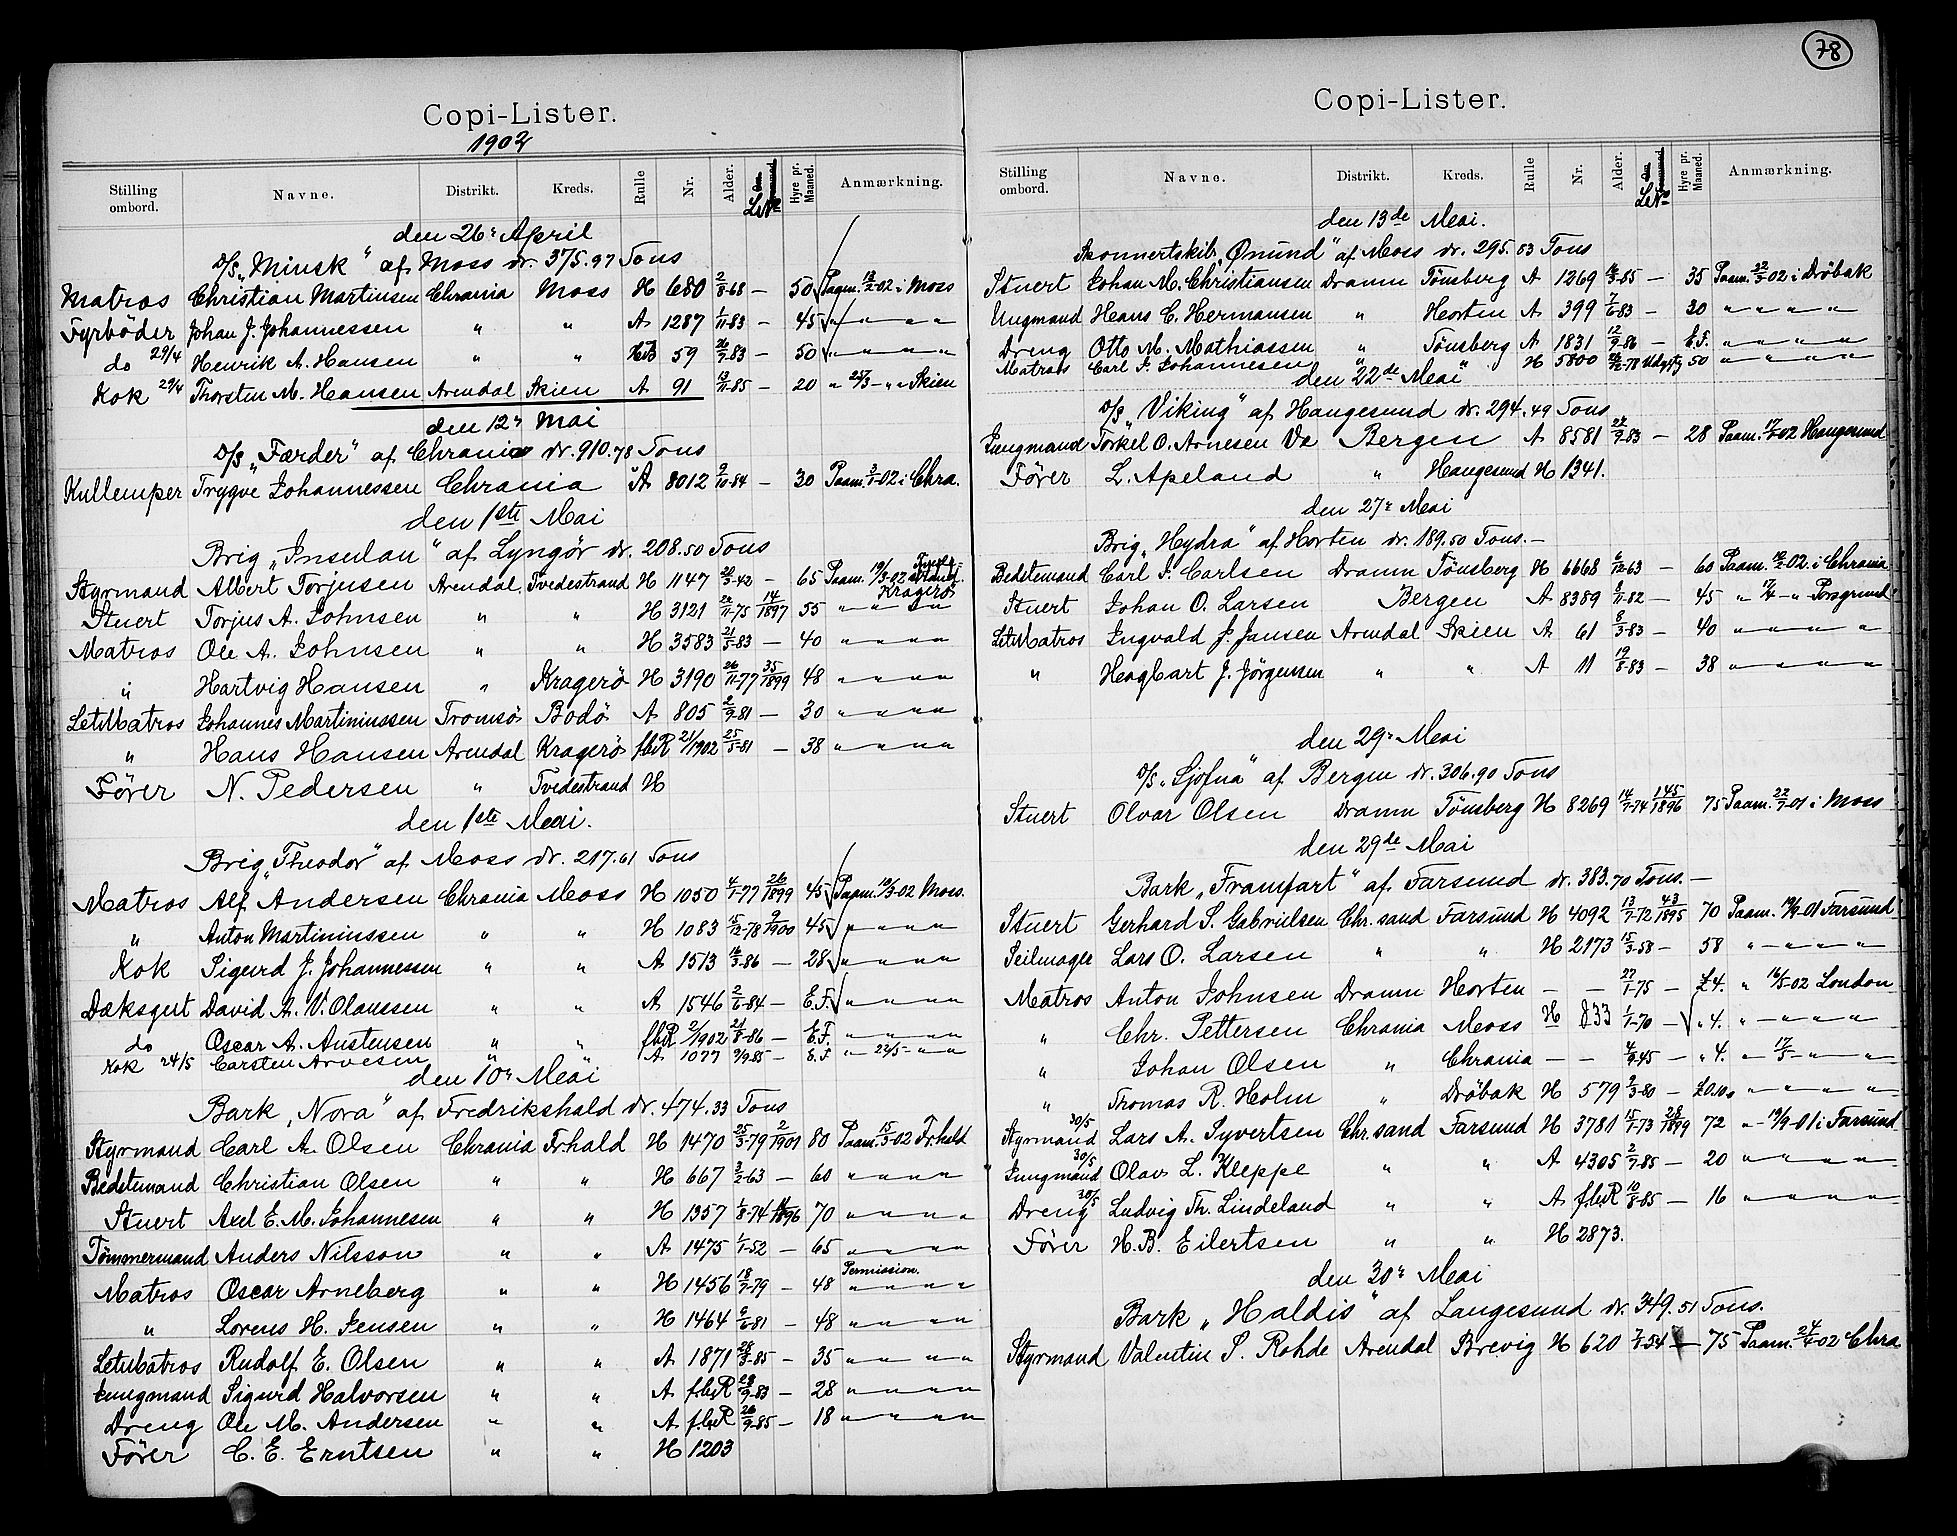 78
Copi-Lister.
1902
Stilling ombord. Navne. Distrikt. Kreds. Rulle Nr. Alder. Hyre pr. Maaned. Anmærkning.
den 26' April
D/S „Minsk" af Moss dr. 375.97 Tons
Matros Christian Martinsen Chrania Moss H 680 2/8-68 — 50 Paam. 12/2-02 i Moss
Fyrböder Johan J. Johannessen " " A 1287 1/11-83 — 45 " " " "
do 29/4 Henrik A. Hansen " " 59 26/9-83 — 50 " " " "
Kok 29/4 Thorsten M. Hansen Arendal Skien A 91 13/11-85 — 20 " 25/3 — " " Skien
den 12' Mai
D/S „Færder" af Chrania dr. 910.78 Tons
Kullemper Trygve Johannessen Chrania A 8012 2/10-84 — 30 Paam. 3/1-02 i Chra.
den 1ste Mai
Brig „Insulan" af Lyngör dr. 208.50 Tons
Styrmand Albert Torjusen Arendal Tvedestrand H 1147 20/3-42 — 65 Paam. 19/3-02 Kragerö
Stuert Torjus A. Johnsen " " H 3121 22/11-75 14/1897 55 " " " "
Matros Ole A. Johnsen " " H 3583 21/5-83 — 40 " " " "
" Hartvig Hansen " Kragerö H 3190 26/11-77 35/1899 48 " " " "
LetMatros Johannes Martiniussen Tromsö Bodö A 805 2/9-81 — 30 " " " "
" Hans Hansen Arendal Kragerö fbR 21/1902 25/5-81 — 38 " " " "
Förer N. Pedersen " Tvedestrand H
den 1ste Mai.
Brig „Theodor" af Moss dr. 217.61 Tons
Matros Alf Andersen Chrania Moss H 1050 4/1-77 26/1899 45 Paam. 12/3-02 Moss.
" Anton Martiniussen " " H 1083 15/12-78 9/1900 45 " " " "
Kok Sigurd J. Johannessen " " A 1513 16/3-86 — 28 " " " "
Dæksgut David A. V. Olaussen " " A 1546 2/6-84 — E.F. " " " "
do Oscar A. Austensen " " fbR 2/1902 21/8-86 — E.F. " " " "
Kok 24/5 Carsten Arvesen " " A 1077 9/9-85 — E.F " 22/5 — " "
den 10' Mai
Bark „Nora" af Fredrikshald dr. 474.33 Tons
Styrmand Carl A. Olsen Chrania Fr.hald H 1470 25/3-79 2/1901 80 Paam. 15/3-02 Fr.hald
Bedstemand Christian Olsen " " H 667 3/2-63 — 60 " " " "
Stuert Axel E. M. Johannesen " " H 1357 1/8-74 /1896 70 " " " "
Tömmermand Anders Nilsson " " A 1475 1/1-52 — 65 " " " "
Permission.
Matros Oscar Arneberg " " H 1456 18/7-79 — 48 " " " "
" Lorens H. Jensen " " H 1464 6/6-81 — 48 " " " "
LetMatros Rudolf E. Olsen " " A 1871 28/3-85 — 35 " " " "
Jungmand Sigurd Halvorsen " " A fbR 23/9-83 — 28 " " " "
Dreng Ole M. Andersen " " A fbR 26/9-85 — 18 " " " "
Förer C. E. Erntsen " " H 1203
Copi-Lister.
Stilling ombord. Navne. Distrikt. Kreds. Rulle Nr. Alder. Hyre pr. Maaned. Anmærkning.
den 13de Mai.
Skonnertskib „Ønund" af Moss dr. 295.53 Tons
Stuert Johan M. Christiansen Dramn Tönsberg A 1269 16/3-85 — 35 Paam. 22/3-02 i Dröbak
Ungmand Hans C. Hermansen " Horten A 399 7/6-83 — 30 " " " "
Dreng Otto M. Mathiassen " Tönsberg A 1831 12/9-86 — E.F. " " " "
Matros Carl J. Johannesen " " H 5800 Udgytg 50 " " " "
den 22de Mai
D/S „Viking" af Haugesund dr. 294.49 Tons
Jungmand Torkel O. Arnesen Va Bergen A 8581 22/9-83 — 28 Paam. Haugesund
Förer L. Apeland " Haugesund H 1341.
den 27' Mai
Brig „Hydra" af Horten dr. 189.50 Tons.—
Bedstemand Carl F. Carlsen Dramn Tönsberg H 6668 6/10-63 — 60 Paam. 12/2-02 i Chrania
Stuert Johan O. Larsen Bergen A 8389 8/11-82 — 45 " 17/4 — " Porsgrund
LetMatros Ingvald J. Jansen Arendal Skien A 61 8/3-83 — 40 " " " "
" Hagbart J. Jörgensen " " A 11 19/8-83 — 38 " " " "
den 29' Mai
D/S „Sjofna" af Bergen dr. 306.90 Tons
Stuert Olvar Olsen Dramn Tönsberg H 8269 14/7-74 145/1896 75 Paam. 22/7-01 i Moss
den 29de Mai
Bark „Framfart" af Farsund dr. 383.70 Tons.—
Stuert Gerhard S. Gabrielsen Chr.sand Farsund H 4092 13/7-72 43/1895 70 Paam. 19/9-01 Farsund
Seilmager Lars O. Larsen " " H 2173 15/3-58 — 58 " " " "
Matros Anton Johnsen Dramn Horten — — 27/1-75 — £4. " 16/5-02 London
" Chr. Pettersen Chrania Moss H 833 1/1-70 — " 4. " " " "
" Johan Olsen " Chrania — — 4/9-45 — " 4. " 17/5 — " "
" Thomas R. Holm " Dröbak H 579 2/3-80 — £0.10s " " " "
Styrmand 30/5 Lars A. Syvertsen Chr.sand Farsund H 3781 15/7-73 28/1899 72 " — 19/9-01 i Farsund
Jungmand 30/5 Olav L. Kleppe " " A 4305 2/7-85 — 20 " " " "
Dreng 30/5 Ludvig Th. Lindeland " " A fbR 10/8-85 — 16 " " " "
Förer H. B. Eilertsen " " H 2873.
den 30' Mai
Bark „Haldis" af Langesund dr. 349.51 Tons.
Styrmand Valentin S. Rohde Arendal Brevig H 620 7/7-54 — 75 Paam. 24/4-02 Chra